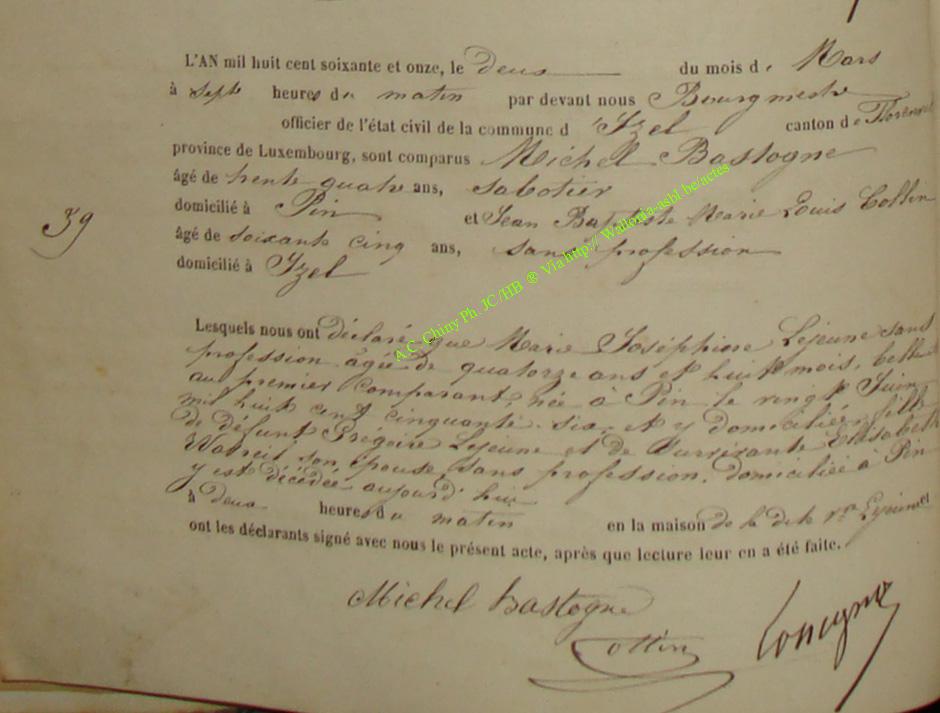 L'AN mil huit cent soixante et onze, le deux du mois de Mars
à sept heures du matin par devant nous Bourgmestre
officier de l'état civil de la commune d'Izel canton de
province de Luxembourg, sont comparus Michel Bastogne
âgé de trente quatre ans, sabotier
domicilié à Pin et Jean Baptiste Marie Louis Collin
âgé de soixante cinq ans, sans profession
domicilié à Izel
39
A.C. Chiny Ph. JC/HB ® Via http:// Wallonia-asbl.be/actes
Lesquels nous ont déclaré que Marie Joséphine Lejeune sans
profession, âgée de quatorze ans et huit mois, belle
au premier comparant, née à Pin le vingt Juin
mil huit cent cinquante six, et y domiciliée, fille
de défunt Grégoire Lejeune et de survivante Elisabeth
Watreil son épouse, sans profession, domiciliée à Pin
y est décédée aujourd'hui
à deux heures du matin en la maison de la dite Vve Lejeune et
ont les déclarants signé avec nous le présent acte, après que lecture leur en a été faite.
Michel Bastogne
Collin